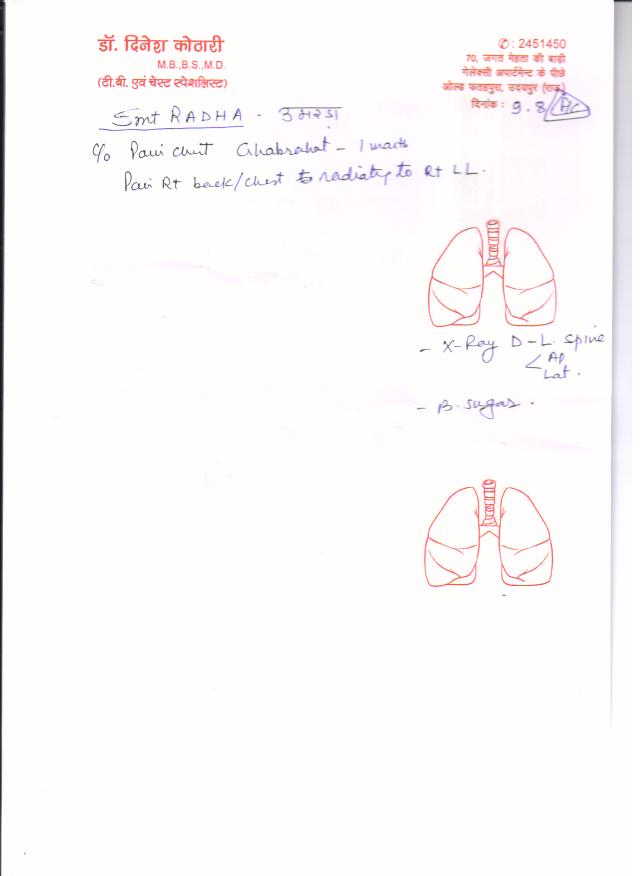 डॉ. दिनेश कोठारी
M.B.,B.S.,M.D.
(टी.बी. एवं चेस्ट स्पेशलिस्ट)
✆ : 2451450
70, जगत मेहता की बाड़ी
गेलेक्सी अपार्टमेन्ट के पीछे
ओल्ड फतहपुरा, उदयपुर (राज.)
दिनांक : 9.8
Smt RADHA - उमरडा
C/o Pain chest Ghabrahat - 1 month
Pain Rt back/chest radiating to Rt LL.
- X-Ray D-L. Spine
AP
Lat.
- B. sugar.